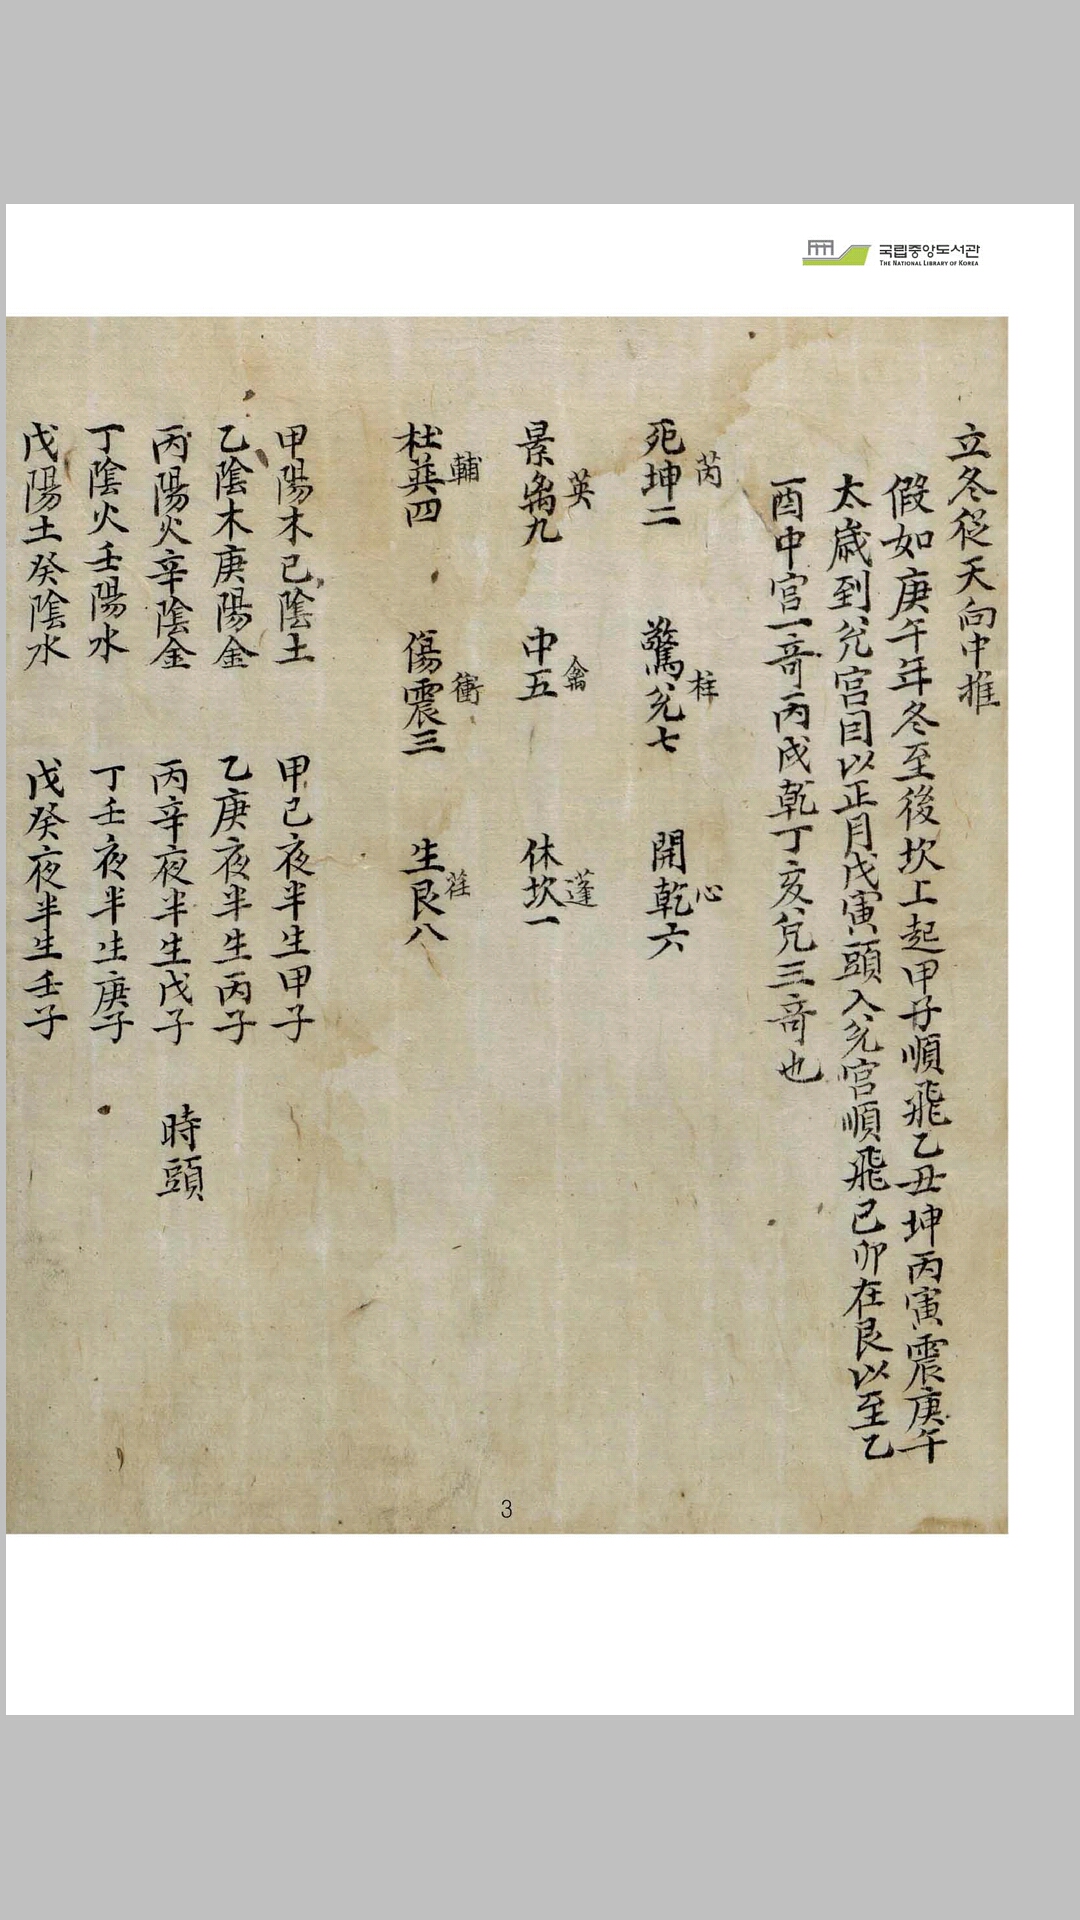 국립중앙도서관
THE NATIONAL LIBRARY OF KOREA
立冬從天向中推
假如庚午年冬至後坎上起甲子順飛乙丑坤丙寅震庚午
太歲到兊宮因以正月戊寅頭入兊宮順飛己卯在艮以至乙
酉中宮一竒丙戌乾丁亥兊三竒也
芮
死坤二
柱
驚兊七
心
開乾六
英
景离九
禽
中五
蓬
休坎一
輔
杜巽四
衝
傷震三
任
生艮八
甲陽木己陰土
甲己夜半生甲子
乙陰木庚陽金
乙庚夜半生丙子
丙陽火辛陰金
丙辛夜半生戊子
時頭
丁陰火壬陽水
丁壬夜半生庚子
戊陽土癸陰水
戊癸夜半生壬子
3